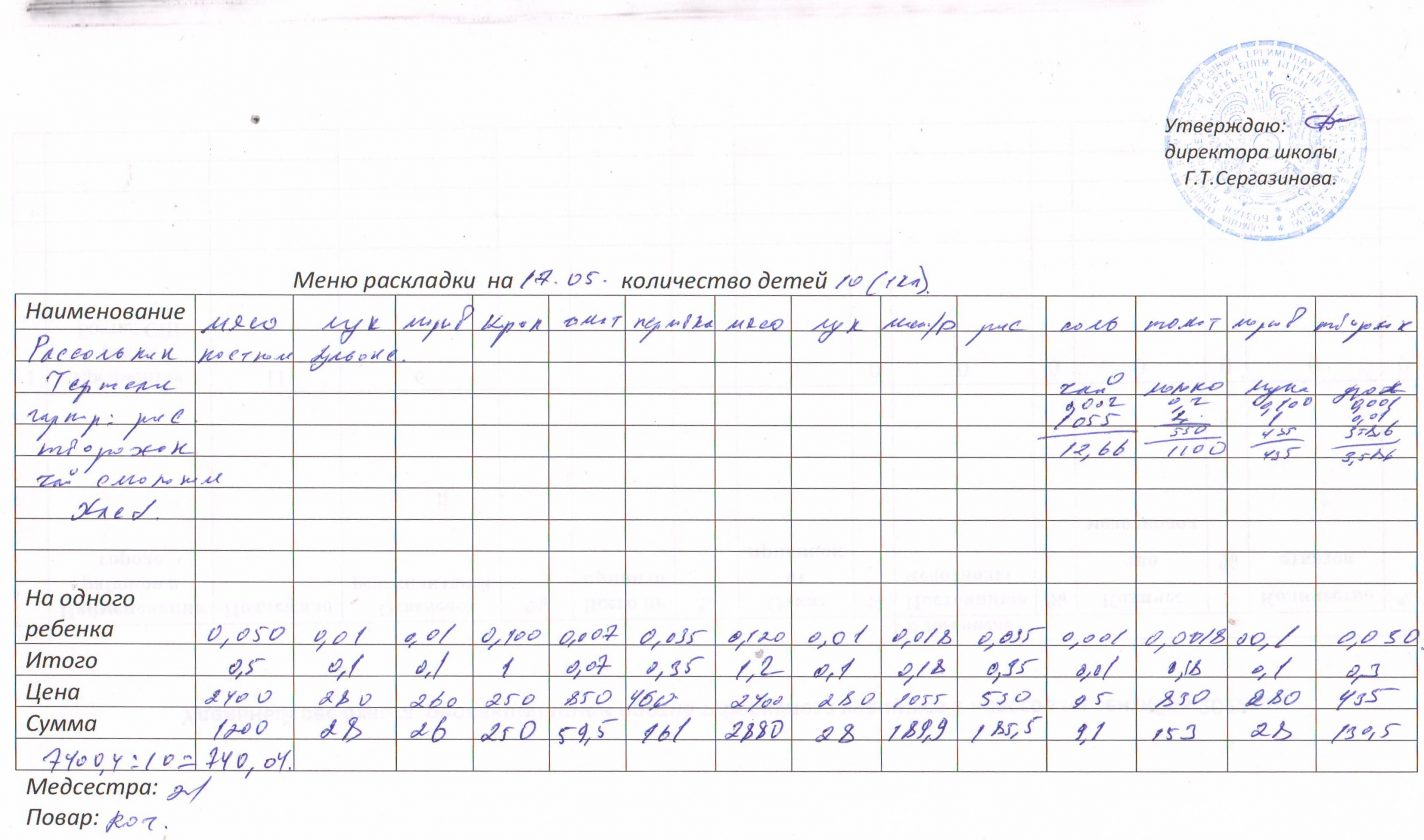 Утверждаю:
директора школы
Г.Т.Сергазинова.
Меню раскладки на 17.05. количество детей 10 (1кл).
Наименование мясо лук морков томат перловка мясо лук масло/р рис соль томат морков творожок
Рассольник костном бульоне.
Тефтели чай молоко мука дрож
0,002 0,2 0,100 0,001
гарнир: рис 1055 1 0,01
550 435
творожок 12,66 1100 435
чай с молоком
Хлеб.
На одного
ребенка 0,050 0,01 0,01 0,100 0,007 0,035 0,120 0,01 0,018 0,035 0,001 0,0018 0,1 0,030
Итого 0,5 0,1 0,1 1 0,07 0,35 1,2 0,1 0,18 0,35 0,01 0,18 0,1 0,3
Цена 2400 280 260 250 850 460 2400 280 1055 530 95 850 280 435
Сумма 1200 28 26 250 59,5 161 2880 28 189,9 185,5 9,1 153 28 130,5
7400,4:10=740,04.
Медсестра:
Повар: